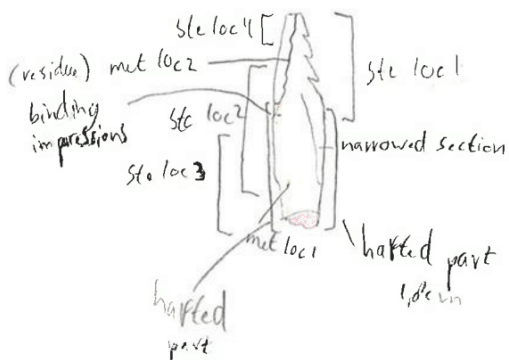 ste loc4
(residue) met loc2
ste loc1
binding
impressions
stc loc2
narrowed section
sto loc3
met loc1
hafted part
hafted
part